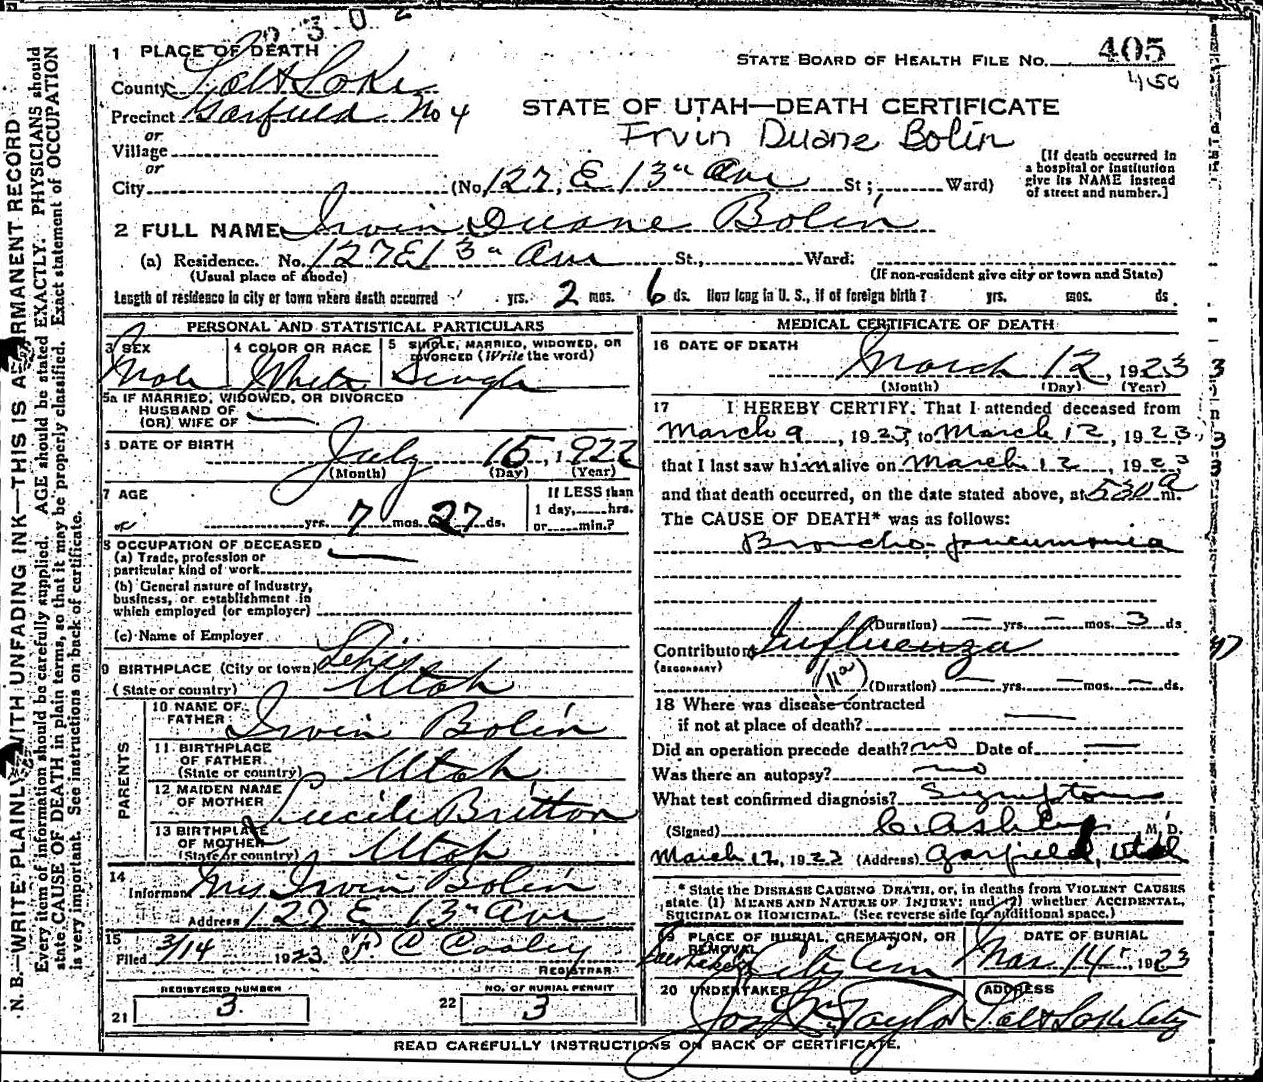 0 3 0 2
1 PLACE OF DEATH
STATE BOARD OF HEALTH FILE NO. 405
County Salt Lake
4150
Precinct Garfield No 4
STATE OF UTAH—DEATH CERTIFICATE
or
Irvin Duane Bolin
Village
or
City (No. 127, E 13th Ave St; Ward)
[If death occurred in a hospital or institution give its NAME instead of street and number.]
2 FULL NAME Irvin Duane Bolin
(a) Residence. No. 127 E 13th Ave St., Ward:
(Usual place of abode) (If non-resident give city or town and State)
Length of residence in city or town where death occurred yrs. 2 mos. 6 ds. How long in U. S., if of foreign birth? yrs. mos. ds.
PERSONAL AND STATISTICAL PARTICULARS
3 SEX Male
4 COLOR OR RACE White
5 SINGLE, MARRIED, WIDOWED, OR DIVORCED (Write the word) Single
5a IF MARRIED, WIDOWED, OR DIVORCED
HUSBAND OF
(OR) WIFE OF —
6 DATE OF BIRTH July 15, 1922
(Month) (Day) (Year)
7 AGE
or yrs. 7 mos. 27 ds.
If LESS than 1 day, hrs. or min.?
8 OCCUPATION OF DECEASED —
(a) Trade, profession or particular kind of work
(b) General nature of industry, business, or establishment in which employed (or employer)
(c) Name of Employer
9 BIRTHPLACE (City or town) Lehi
(State or country) Utah
PARENTS
10 NAME OF FATHER Irvin Bolin
11 BIRTHPLACE OF FATHER (State or country) Utah
12 MAIDEN NAME OF MOTHER Lucile Britton
13 BIRTHPLACE OF MOTHER (State or country) Utah
14
Informant Mrs Irvin Bolin
Address 127 E 13th Ave
15
Filed 3/14 1923 F. C Cooley
REGISTRAR
REGISTERED NUMBER
21 3
NO. OF BURIAL PERMIT
22 3
MEDICAL CERTIFICATE OF DEATH
16 DATE OF DEATH
March 12, 1923 3
(Month) (Day) (Year)
17 I HEREBY CERTIFY. That I attended deceased from
March 9, 1923, to March 12, 1923, 3
that I last saw him alive on March 12, 1923, 3
and that death occurred, on the date stated above, at 530 a m.
The CAUSE OF DEATH* was as follows:
Broncho-pneumonia
(Duration) — yrs. — mos. 3 ds
Contributory Influenza
(SECONDARY)
(11a) (Duration) — yrs. — mos. — ds.
18 Where was disease contracted
if not at place of death? —
Did an operation precede death? no Date of —
Was there an autopsy? no
What test confirmed diagnosis? Symptoms
(Signed) M. D.
March 12, 1923 (Address) Garfield, Utah
* State the DISEASE CAUSING DEATH, or, in deaths from VIOLENT CAUSES
state (1) MEANS AND NATURE OF INJURY; and (2) whether ACCIDENTAL,
SUICIDAL OR HOMICIDAL. (See reverse side for additional space.)
19 PLACE OF BURIAL, CREMATION, OR REMOVAL
City Cem
DATE OF BURIAL
Mar. 14, 1923
20 UNDERTAKER
Taylor
ADDRESS
Salt Lake City
READ CAREFULLY INSTRUCTIONS ON BACK OF CERTIFICATE.
N. B.—WRITE PLAINLY WITH UNFADING INK—THIS IS A PERMANENT RECORD
Every item of information should be carefully supplied. AGE should be stated EXACTLY. PHYSICIANS should
state CAUSE OF DEATH in plain terms, so that it may be properly classified. Exact statement of OCCUPATION
is very important. See instructions on back of certificate.